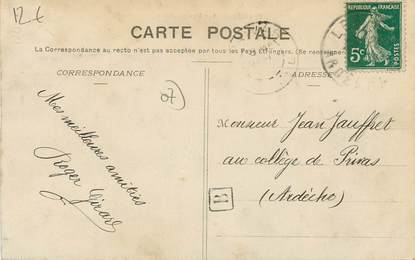 12€
CARTE POSTALE
La Correspondance au recto n'est pas acceptée par tous les Pays Etrangers. (Se renseigner
CORRESPONDANCE
ADRESSE
07
5c
POSTES
Mes meilleures amitiés
Roger Girard
Monsieur Jean Jauffret
au collège de Privas
(Ardèche)
B